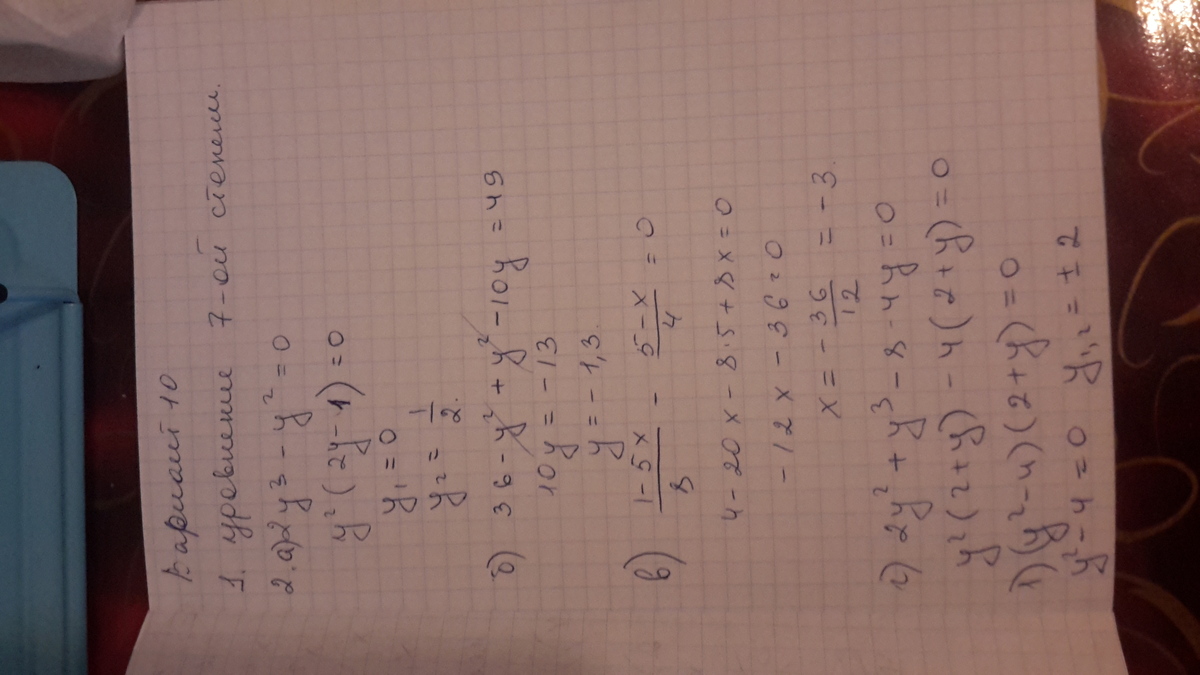 Вариант 10
1. уровнение 7-ой степени.
2. а) 2y³ - y² = 0
y² (2y-1) = 0
y₁ = 0
y₂ = 1/2.
б) 36 - y² + y² - 10y = 49
10y = -13
y = -1,3.
в) (1-5x)/8 - (5-x)/4 = 0
4 - 20x - 8·5 + 8x = 0
-12x - 36 = 0
x = - 36/12 = -3.
г) 2y² + y³ - 8 - 4y = 0
y² (2+y) - 4 (2+y) = 0
1) (y²-4) (2+y) = 0
y² - 4 = 0 y₁,₂ = ± 2